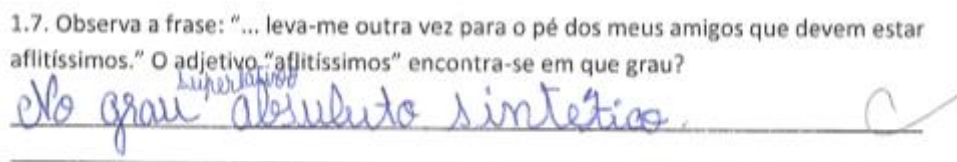 1.7. Observa a frase: "... leva-me outra vez para o pé dos meus amigos que devem estar
aflitíssimos." O adjetivo "aflitíssimos" encontra-se em que grau?
superlativo
No grau absuluto sintético.
C